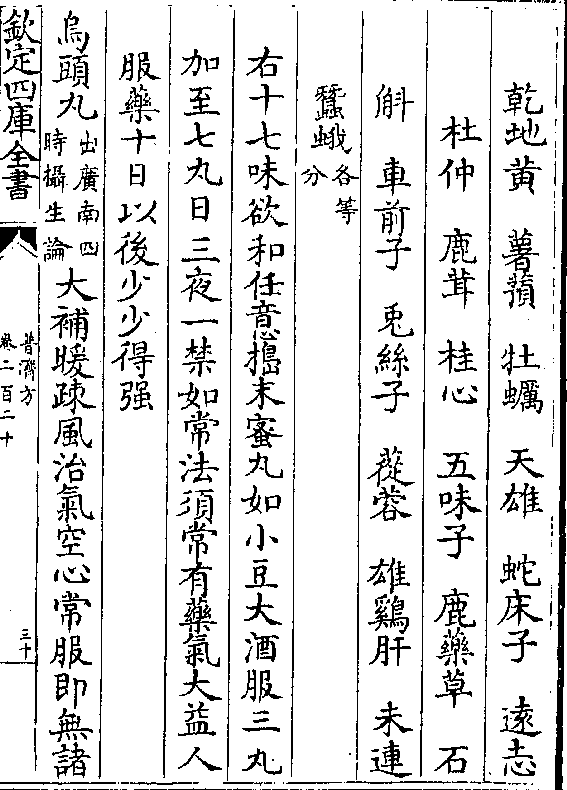 乾地黄　薯蕷　牡蠣　天雄　蛇床子　遠志
杜仲　鹿茸　桂心　五味子　鹿藥草　石
斛　車前子　兎絲子　蓯蓉　雄鷄肝　未連
蠶蛾各等分
右十七味欲和任意擣末蜜丸如小豆大酒服三丸
加至七丸日三夜一禁如常法須常有藥氣大益人
服藥十日以後少少得强
烏頭丸出廣南四時攝生論　大補暖疎風治氣空心常服即無諸
欽定四庫全書
普濟方
卷二百二十
三十